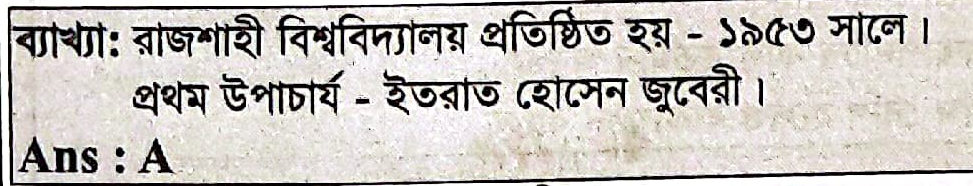 ব্যাখ্যা: রাজশাহী বিশ্ববিদ্যালয় প্রতিষ্ঠিত হয় - ১৯৫৩ সালে।
প্রথম উপাচার্য - ইতরাত হোসেন জুবেরী।
Ans : A